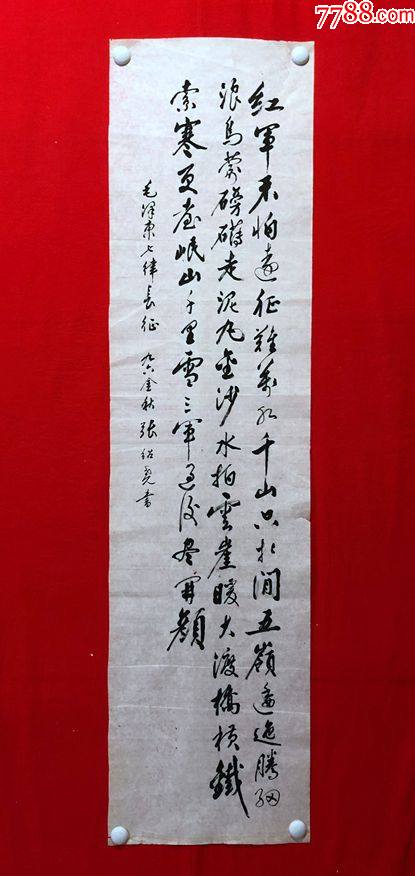 7788.com
红軍不怕遠征難萬水千山只等闲五嶺逶迤腾细
浪烏蒙磅礴走泥丸金沙水拍雲崖暖大渡橋横鐵
索寒更喜岷山千里雪三軍過後尽开颜
毛泽東七律長征 九六金秋張绍尧書